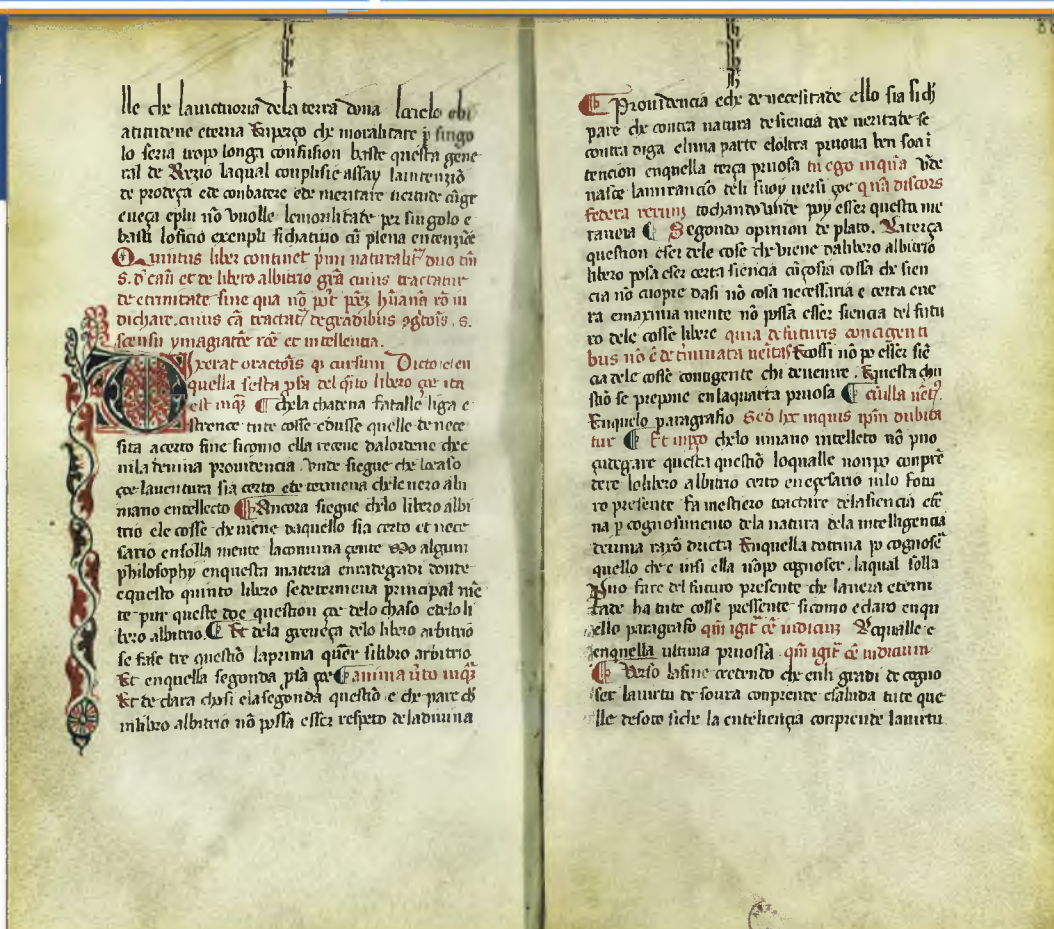 lle che la victuoria dela terra dona lo cielo obi
atitutene eterna Et perço che moralitare p singo
lo seria trop longa confusion baste questa gene
ral de Rezio laqual conplisie assay laintenziõ
de proteça ede combatere ede meritare
e uno volle lemoralitate per singolo e
basti loficio exenpli fichatiuo cũ plena
Quintus liber continet pñi naturalit' duo
s. d' cãu et de libero albitrio grã cuius tractatur
de etrnitate sine qua nõ pot hũana rõ iu
dichare. cuius cã tractat' de gradibus ogtõis. s.
sensu ymagiatõe rõe et intellencia.
Dixerat orationis q cursum Dicto e en
quella sesta psa del qrto libro çoe ita
est inqz ¶ che la chatena fatalle liga e
strence tute cosse edusse quelle de nece
sita acerto fine sicomo ella receue dalordene che e
nila deuina prouidencia. Vnde siegue che locaso
çoe lauentura sia certo ede termena che le uero alu
mano entellecto ¶ Ancora siegue che lo libero albi
trio e le cosse che uiene da quello sia certo et nece
sario en solla mente la comuna çente Mo alguni
philosophy en questa materia enradegadi donte
e questo quinto libero se determena principal mẽ
te pur queste doe question çoe delo chaso e delo li
bero albitrio. ¶ Et dela greueça delo libero arbitrio
se fase tre questiõ la prima quer si libio arbitrio
Et enquella segonda psa çoe ¶ anima uito inqz
Et de clara chosi e la segonda questiõ e che pare ch
in libro albitrio nõ possa esser respeto de la diuina
¶ Prouidencia e che de necesitade ello sia sich
pare che contra natura de siencia de ueritate se
contra diga e luna parte e loltra prioua ben soa i
tencion en quella terça priosa tu ego inquã Vñde
nasce lamirancõ deli suoy uersi çoe qña discors
federa rerum tochando unde poy esser questa me
raueia ¶ Segondo opinion de plato. La terça
question eser dele cose che viene da libero albitrio
libero posa eser certa siencia cũ çosia cossa che sien
cia nõ cuopre da si nõ cosa necessaria e certa en e
ra e maximamente nõ possa esser siencia del futu
ro dele cosse libere quia de futuris contigenti
bus nõ ẽ determinata ueitas Et cossi nõ po esser siẽ
cia dele cosse contigente chi deuenire. E questa qui
stiõ se prepone en la quarta priosa ¶ cũlla uet'.
Enquelo paragrafio Sed hec inquis ipm dubita
tur ¶ Et impo che lo umano intelleto nõ puo
çutegare questa questiõ loqualle non po conprẽ
dere lo libero albitrio certo e neçesario nilo fotu
ro presente fa mestiero tractare dela siencia etẽ
na p cognosimento dela natura dela intelligencia
deuina raxõ ducta Enquella dotrina po cognosẽ
quello che e ensi ella nõ po cognoser. laqual solla
Puo fare del futuro presente che la uera eterni
tade ha tute cosse pressente sicomo e claro enqu
ello paragrafo qm igit' ce indiciuz Lequalle e
enquella ultima priossa. qm igit' ce indicium
¶ Verso la fine cretendo che en li gradi de cogno
ser la uirtu de soura conprente e salida tute que
lle de soto siche la enteligença conprente la uirtu